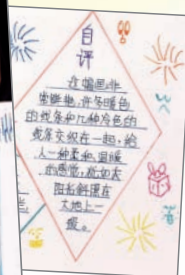 自
评
这幅画非
常鲜艳,许多暖色
的线条和几种冷色的
线条交织在一起,给
人一种柔和、温暖
的感觉,就如太
阳光斜洒在
大地上一
般。